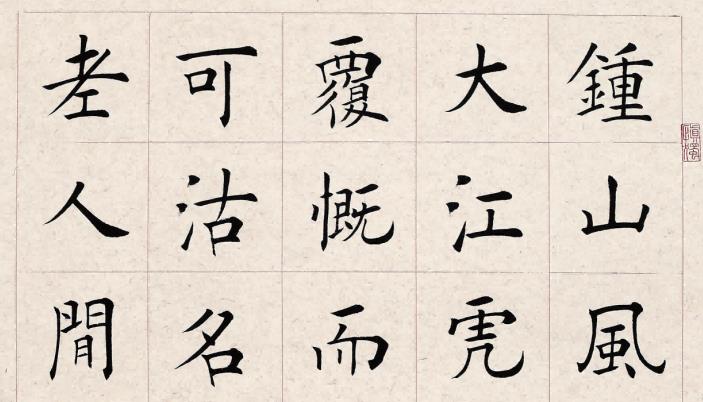 鍾山風
大江虎
覆慨而
可沽名
老人閒